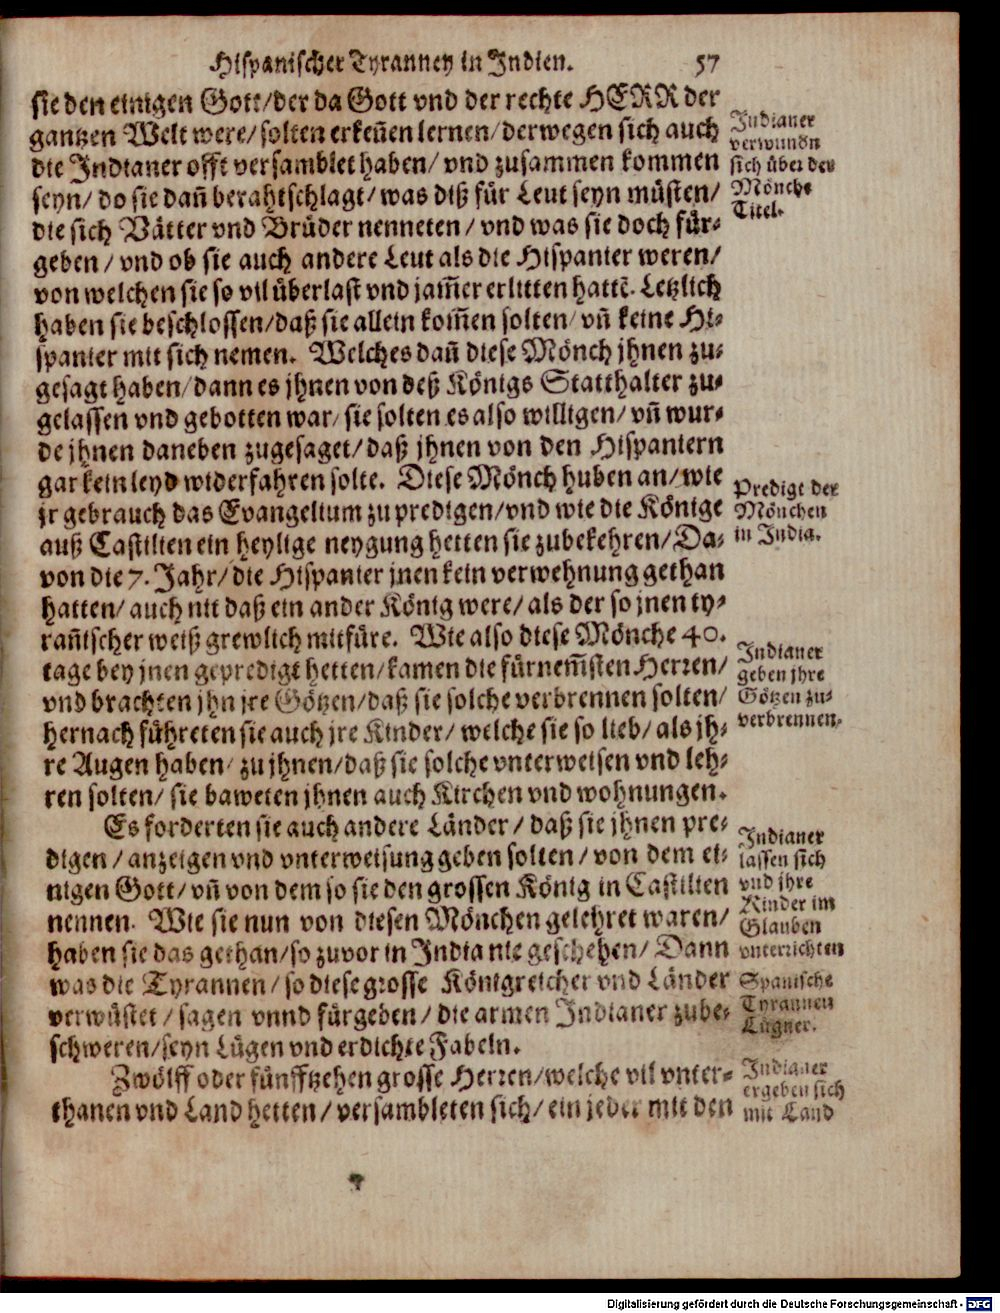 Hispanischer Tyranney in Indien. 57
sie den einigen Gott/der da Gott vnd der rechte HERR der
gantzen Welt were/solten erkeñen lernen/derwegen sich auch
die Indianer offt versamblet haben/ vnd zusammen kommen
seyn/ do sie dañ berahtschlagt/ was diß für Leut seyn müsten/
die sich Vätter vnd Brüder nenneten / vnd was sie doch für-
geben / vnd ob sie auch andere Leut als die Hispanier weren/
von welchen sie so vil überlast vnd jam̃er erlitten hattẽ. Letzlich
haben sie beschlossen/daß sie allein kom̃en solten/ vñ keine Hi-
spanier mit sich nemen. Welches dañ diese Mönch jhnen zu-
gesagt haben/dann es jhnen von deß Königs Statthalter zu-
gelassen vnd gebotten war/ sie solten es also willigen/ vñ wur-
de jhnen daneben zugesaget/daß jhnen von den Hispaniern
gar kein leyd widerfahren solte. Diese Mönch huben an/wie
jr gebrauch das Evangelium zu predigen/vnd wie die Könige
auß Castilien ein heylige neygung hetten sie zubekehren/Da-
von die 7. Jahr/die Hispanier jnen kein verwehnung gethan
hatten/ auch nit daß ein ander König were/ als der so jnen ty-
rañischer weiß grewlich mitfüre. Wie also diese Mönche 40.
tage bey jnen gepredigt hetten/kamen die fürnem̃sten Herren/
vnd brachten jhn jre Götzen/daß sie solche verbrennen solten/
hernach führeten sie auch jre Kinder/ welche sie so lieb/als jh-
re Augen haben/ zu jhnen/daß sie solche vnterweisen vnd leh-
ren solten/ sie baweten jhnen auch Kirchen vnd wohnungen.
Es forderten sie auch andere Länder/ daß sie jhnen pre-
digen / anzeigen vnd vnterweisung geben solten / von dem ei-
nigen Gott/ vñ von dem so sie den grossen König in Castilien
nennen. Wie sie nun von diesen Mönchen gelehret waren/
haben sie das gethan/so zuvor in India nie geschehen/ Dann
was die Tyrannen/ so diese grosse Königreicher vnd Länder
verwüstet / sagen vnnd fürgeben / die armen Indianer zube-
schweren/seyn Lügen vnd erdichte Fabeln.
Zwölff oder fünfftzehen grosse Herren/welche vil vnter-
thanen vnd Land hetten/ versambleten sich/ ein jeder mit den
Indianer
verwundn
sich über der
Mönche
Titel.
Predigt der
Mönchen
in India.
Indianer
geben jhre
Götzen zu-
verbrennen.
Indianer
lassen sich
vnd jhre
Kinder im
Glauben
vnterrichten
Spanische
Tyrannen
Lügner.
Indianer
ergeben sich
mit Land
Digitalisierung gefördert durch die Deutsche Forschungsgemeinschaft - DFG